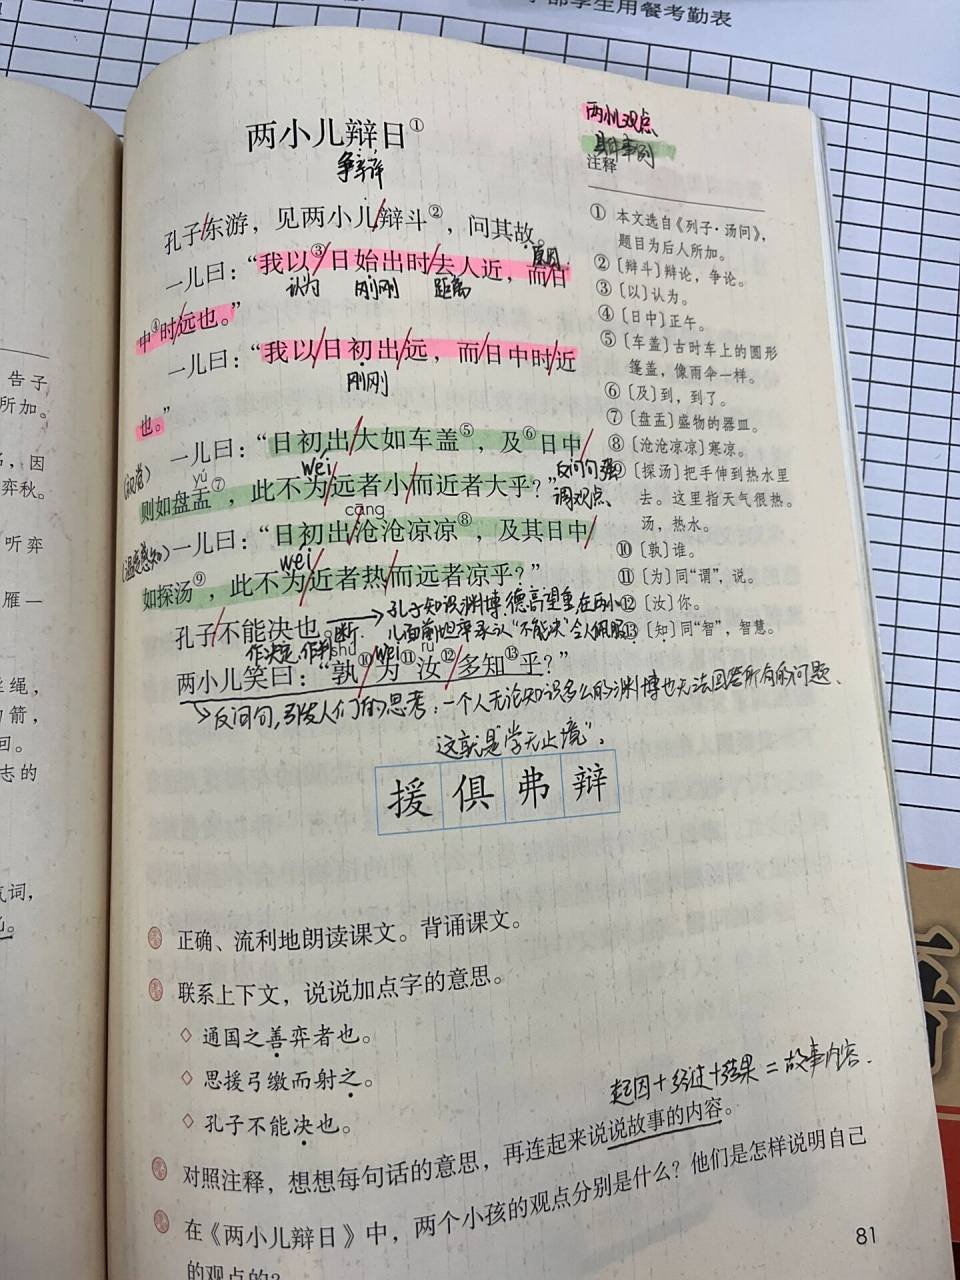 部学生用餐考勤表
告子
所加。
名，因
弈秋。
听弈
雁—
丝绳，
回。
志的
气词，
两小儿辩日①
争辩
两小儿观点
具体事例
注释
孔子/东游，见两小儿/辩斗②，问其故。
原因
一儿曰：“我以③/日始出时/去人近，而/日
认为 刚刚 距离
中④时/远也。”
一儿曰：“我以/日初出/远，而/日中时/近
刚刚
也。”
一儿曰：“日初出/大如车盖⑤，及⑥日中/
(视觉) yú wéi 反问句强
则如盘盂⑦，此不为/远者小/而近者大乎？”
调观点
cāng
一儿曰：“日初出/沧沧凉凉⑧，及其日中/
(温度感知) wéi
如探汤⑨，此不为/近者热/而远者凉乎？”
孔子/不能决也。
断.
孔子知识渊博、德高望重，在两小
儿面前坦率承认“不能决”令人佩服
作决定，作判
shú wèi rǔ
两小儿笑曰：“孰⑩/为⑪汝⑫/多知⑬乎？”
反问句，引发人们的思考：一个人无论知识多么的渊博也无法回答所有的问题、
这就是“学无止境”。
① 本文选自《列子·汤问》，
题目为后人所加。
② 〔辩斗〕辩论，争论。
③ 〔以〕认为。
④ 〔日中〕正午。
⑤ 〔车盖〕古时车上的圆形
篷盖，像雨伞一样。
⑥ 〔及〕到，到了。
⑦ 〔盘盂〕盛物的器皿。
⑧ 〔沧沧凉凉〕寒凉。
⑨ 〔探汤〕把手伸到热水里
去。这里指天气很热。
汤，热水。
⑩ 〔孰〕谁。
⑪ 〔为〕同“谓”，说。
⑫ 〔汝〕你。
⑬ 〔知〕同“智”，智慧。
援 俱 弗 辩
正确、流利地朗读课文。背诵课文。
联系上下文，说说加点字的意思。
◇ 通国之善弈者也。
◇ 思援弓缴而射之。
◇ 孔子不能决也。
起因+经过+结果=故事内容.
对照注释，想想每句话的意思，再连起来说说故事的内容。
在《两小儿辩日》中，两个小孩的观点分别是什么？他们是怎样说明自己
的观点的？
81